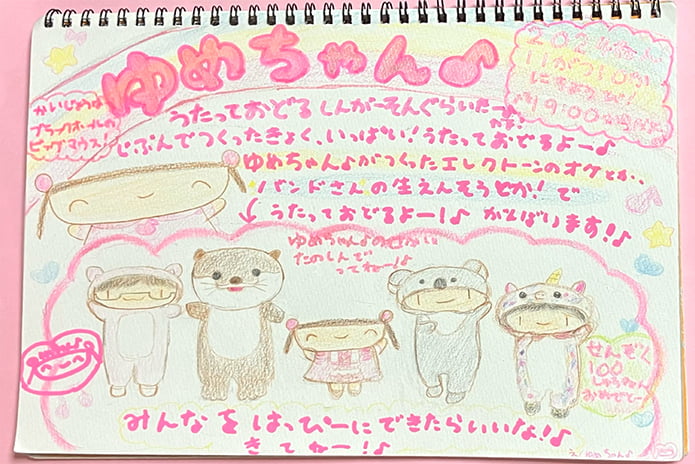 ゆめちゃん♪
11がつ10か
19:00
かいじょうは
ブラックホールの
ビッグマウス!
うたっておどる しんがーそんぐらいたー♪
じぶんでつくったきょく、いっぱい!うたっておどるよー♪
ゆめちゃん♪がつくったエレクトーンのオケとか、
バンドさんの生えんそうとか!で
うたっておどるよー!♪ がんばります!♪
ゆめちゃん♪のせかい
たのしんで
ってねー!♪
せんぞく
100
しゅうねん
おめでとー
みんなをはっぴーにできたらいいな!♪
きてねー!♪
え/ゆめちゃん♪